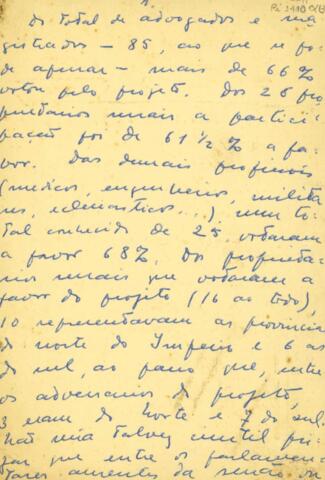 do total de advogados e ma
gistrados — 85, ao que se po
de apurar — mais de 66%
votou pelo projeto. Dos 26 pro
prietarios rurais a partici
pação foi de 61 ½ % a fa
vor. Das demais profissões
(medicos, engenheiros, milita
res, eclesiasticos...), num to
tal conhecido de 25 votaram
a favor 68%. Dos proprieta
rios rurais que votaram a
favor do projeto (16 ao todo),
10 representavam as provincias
do norte do Imperio e 6 as
do sul, ao passo que, entre
os adversarios do projeto,
3 eram do Norte e 7 do sul.
Não seria talvez inutil fri
zar que entre os parlamen
tares ausentes da sessão ou